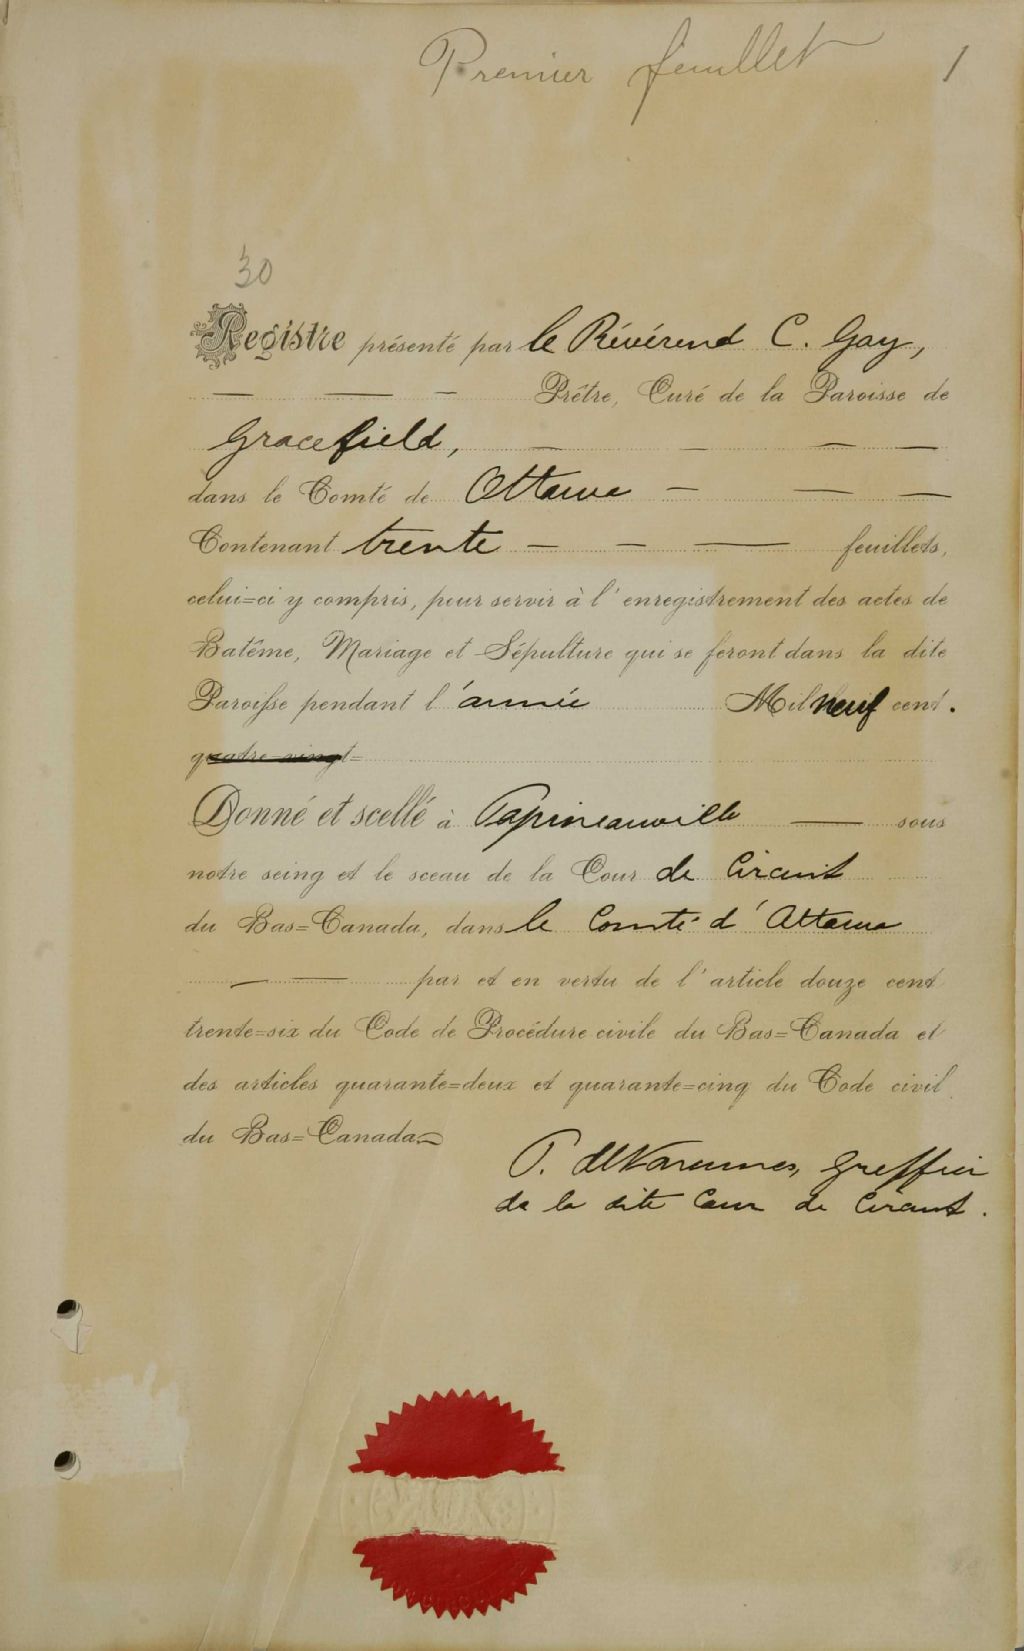 Premier feuillet 1
30
Registre présenté par le Révérend C. Gay,
— — - Prêtre, Curé de la Paroisse de
Gracefield, — - — —
dans le Comté de Ottawa - — —
Contenant trente - - — feuillets,
celui=ci y compris, pour servir à l'enregistrement des actes de
Batême, Mariage et Sépulture qui se feront dans la dite
Paroisse pendant l'année Mil neuf cent.
quatre vingt=
Donné et scellé à Papineauville — sous
notre seing et le sceau de la Cour de Circuit
du Bas=Canada, dans le Comté d'Ottawa
— par et en vertu de l'article douze cent
trente=six du Code de Procédure civile du Bas=Canada et
des articles quarante=deux et quarante=cinq du Code civil
du Bas=Canada.
P. deVarennes, Greffier
de la dite Cour de Circuit.